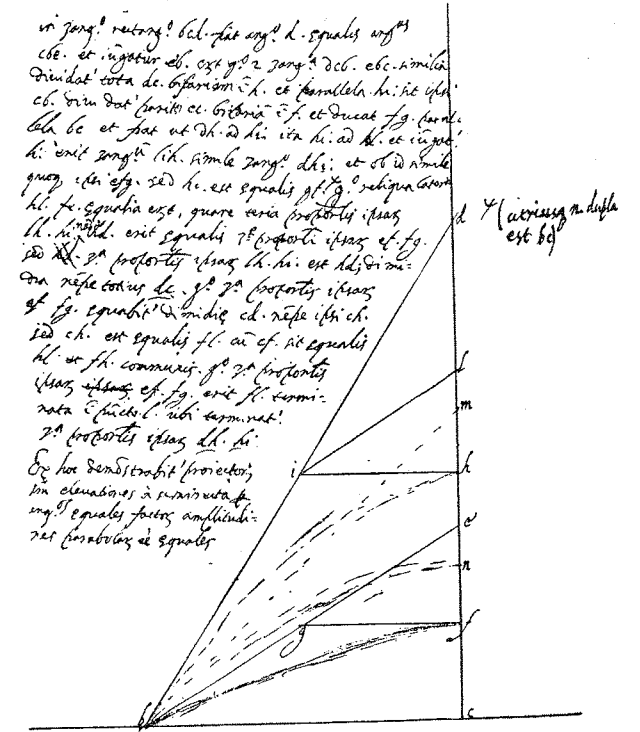 in triang.º rectang.º bcd. fiat ang.s d. equalis ang.us
cbe. et iungatur eb. ergo 2 triang.a dcb. ebc. similia
dividat.r tota dc. bifariam i h. et parallela hi. sit ipsi
cb. dividat.r pariter ec. bifaria i f. et ducat. fg. paral-
lela bc et fiat ut dh. ad hi. ita hi. ad hl. et iungat.r
li. erit triang.m lih. simile triang.o dhi. et ob id simile
quoq ipsi efg. sed hi. est equalis gf. ergo reliqua latera
hl. fe. equalia erunt, quare tertia proportionalis ipsarum
lh. hi. nempe hd. erit equalis 3.e proportionali ipsarum ef. fg.
sed 3.a proportionalis ipsarum lh. hi. est hd, dimi-
dia nempe totius dc. ergo 3.a proportionalis ipsarum
ef fg. equabit.r dimidie cd. nempe ipsi ch.
sed ch. est equalis fl. cum cf. sit equalis
hl et fh. communis. ergo 3.a proportionalis
ipsarum ef. fg. erit fl. termi-
nata i puncto l. ubi terminat.r
3.a proportionalis ipsarum dh. hi
Ex hoc demonstrabit.r proiectorum
iux elevationes à semirecta
ang.os equales factorum amplitudi-
nes parabolarum esse equales
d (utriusq n. dupla
est bc)
l
m
i h
e
n
g f
b c